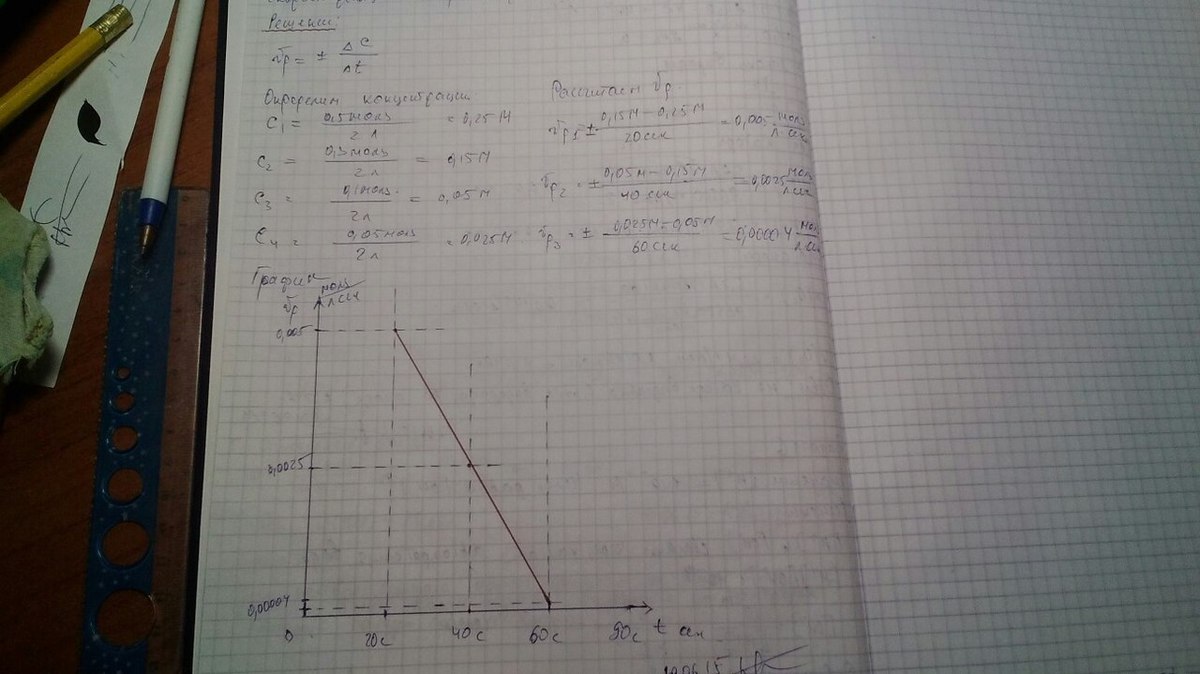 Решение:
υр = ± ΔC/Δt
Определим концентрации
C₁ = 0,5 моль / 2 л = 0,25 М
C₂ = 0,3 моль / 2 л = 0,15 М
C₃ = 0,1 моль / 2 л = 0,05 М
C₄ = 0,05 моль / 2 л = 0,025 М
Рассчитаем υр.
υр1 = ± 0,15М – 0,25М / 20 сек = 0,005 моль/л сек
υр2 = ± 0,05М – 0,15М / 40 сек = 0,0025 моль/л сек
υр3 = ± 0,025М – 0,05М / 60 сек = 0,00004 моль/л сек
График
υр моль/л сек
0,005
0,0025
0,00004
0 20с 40с 60с 90с t сек